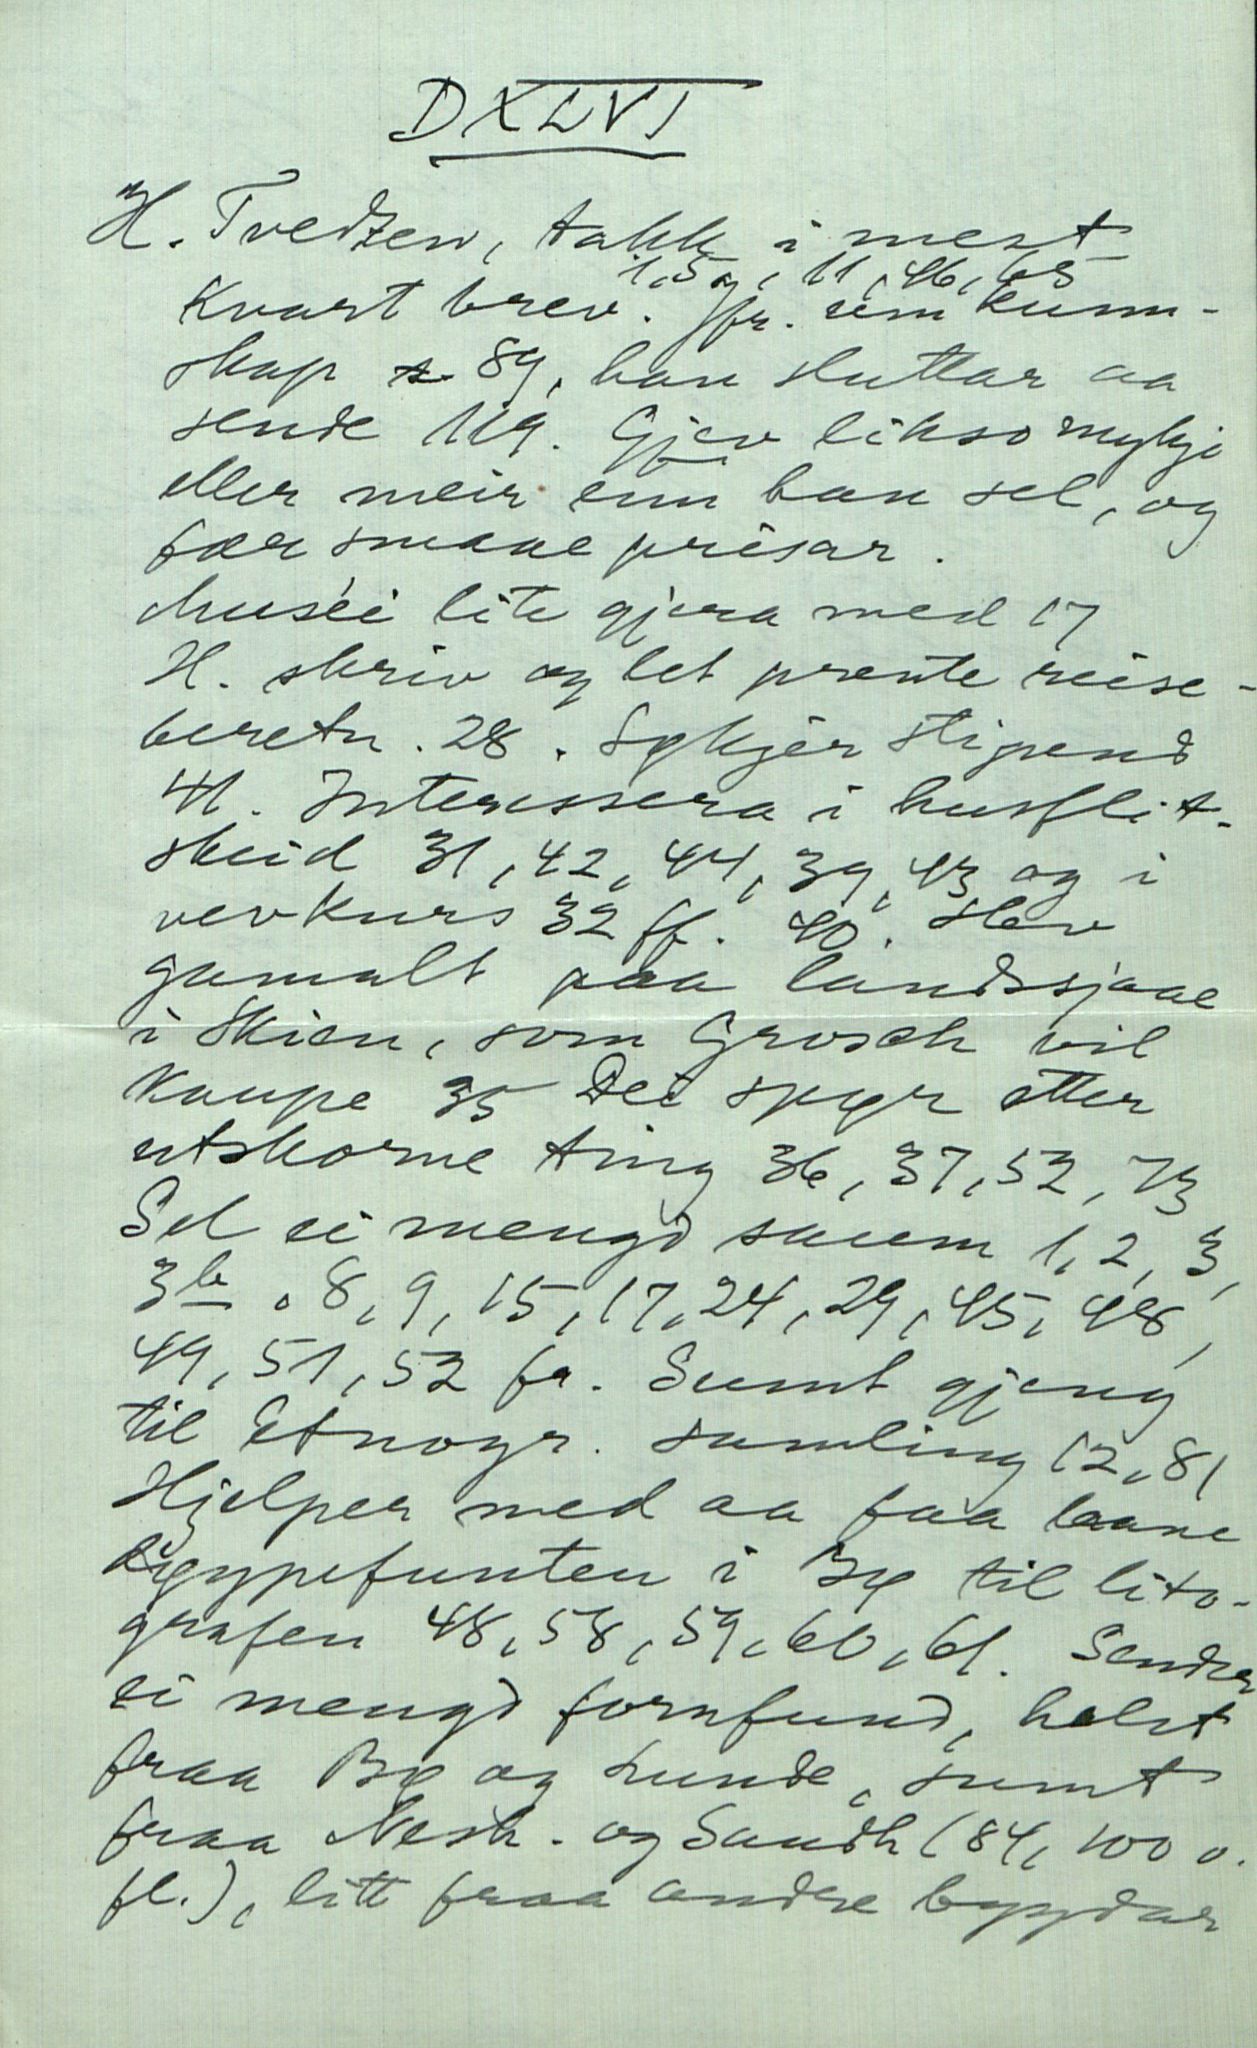 DXLVI
H. Tvedten, takk i mest
1, 5 og, 11, 46, 65
kvart brev. Jfr. um kunn-
skap 89, han sluttar aa
sende 119. Gjev likso mykje
eller meir enn han sel, og
fær smaae prisar.
Muséi lite gjera med 17
H. skriv og let prente reise-
beretn. 28. Sykjer stipend
41. Interessera i husflit-
skeid 31, 42, 44, 39, 43 og i
vevkurs 32 ff. 40. Hev
gamalt paa landssjaae
i Skien, som Grosch vil
kaupe 35 Dei spyr etter
utskorne ting 36, 37, 52, 73
Sel ei mengd saum 1, 2, 3,
3b, 8, 9, 15, 17, 24, 29, 45, 48,
49, 51, 52 fr. Sumt gjeng
til Etnogr. samling 12, 81
Hjelper med aa faa laane
digypefunten i Bø til lito-
grafen 48, 58, 59, 60, 61. Sender
ei mengd fornfund, helst
fraa Bø og Lunde, sumt
fraa Nesh. og Saudh (84, 100 o.
fl.), litt fraa andre bygdar